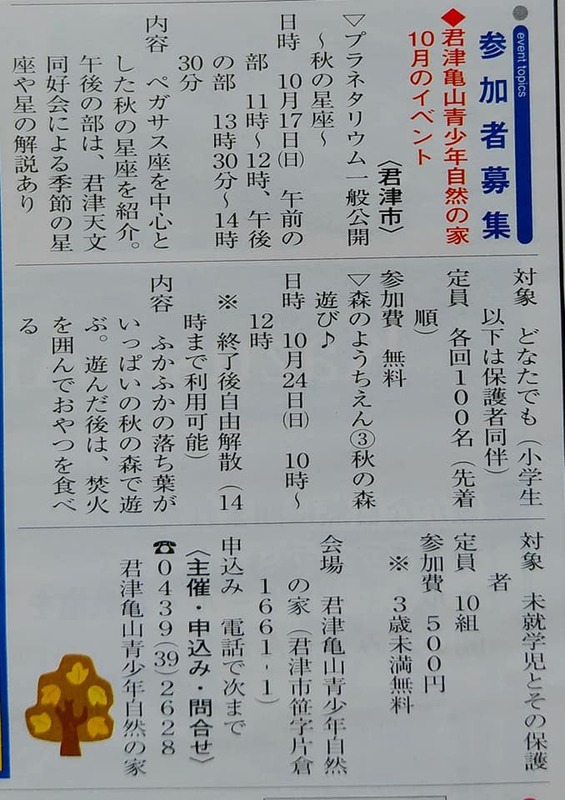 event topics
参加者募集
◆君津亀山青少年自然の家
10月のイベント
〈君津市〉
▽プラネタリウム一般公開
～秋の星座～
日時　10月17日㈰　午前の
部　11時～12時、午後
の部　13時30分～14時
30分
内容　ペガサス座を中心と
した秋の星座を紹介。
午後の部は、君津天文
同好会による季節の星
座や星の解説あり
対象　どなたでも（小学生
以下は保護者同伴）
定員　各回100名（先着
順）
参加費　無料
▽森のようちえん③秋の森
遊び♪
日時　10月24日㈰　10時～
12時
※　終了後自由解散（14
時まで利用可能）
内容　ふかふかの落ち葉が
いっぱいの秋の森で遊
ぶ。遊んだ後は、焚火
を囲んでおやつを食べ
る
対象　未就学児とその保護
者
定員　10組
参加費　500円
※　3歳未満無料
会場　君津亀山青少年自然
の家（君津市笹字片倉
1661-1）
申込み　電話で次まで
〈主催・申込み・問合せ〉
☎0439(39)2628
君津亀山青少年自然の家